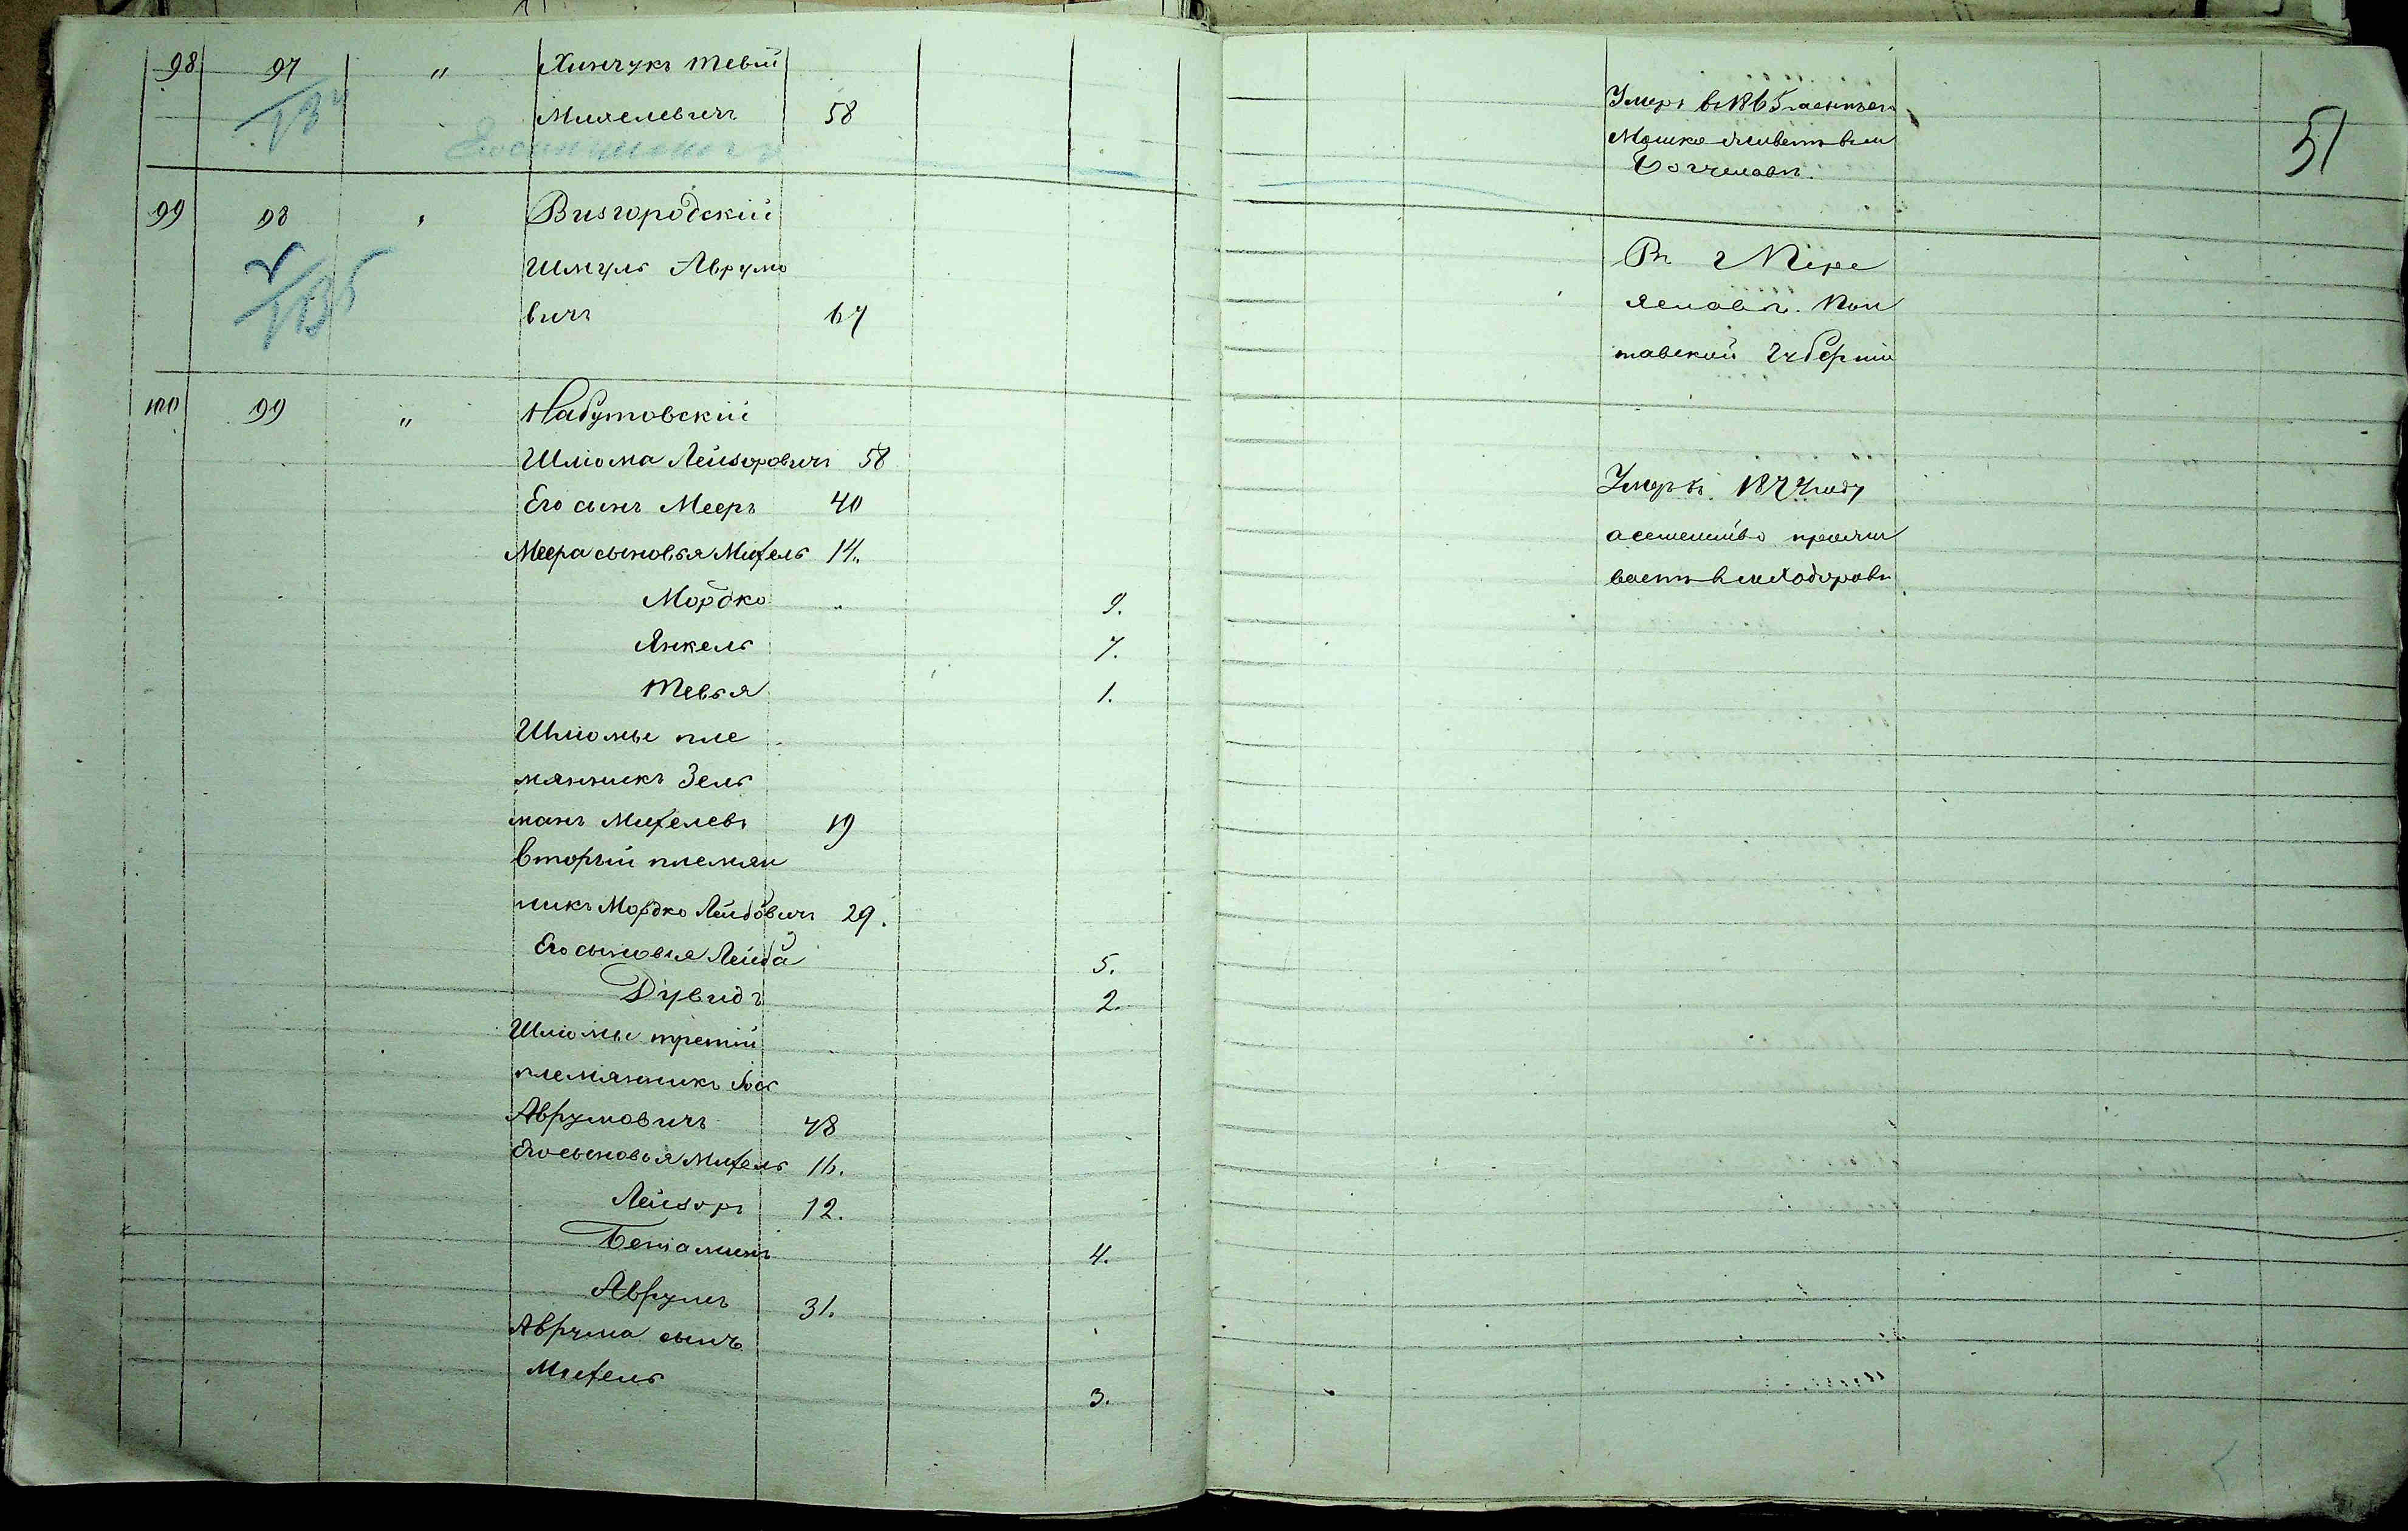 98 97 " Хинчукъ Тевій
Михелевичъ 58
134
Его сынъ
99 98 " Вигородскій
135
Шмуль Аврумо
вичъ 67
100 99 " Набутовскій
Шліома Лейзоровичъ 58
Его сынъ Мееръ 40
Меера сыновья Михель 14.
Мордко 9.
Янкель 7.
Тевья 1.
Шліомы пле
мянникъ Зель
манъ Михелевъ 19
вторый племян
никъ Мордко Лейбовичъ 29.
Его сыновья Лейба 5.
Дувидъ 2.
Шліомы третій
племянникъ Іось
Аврумовичъ 48
Его сыновья Михель 16.
Лейзоръ 12.
Беніаминъ 4.
Аврумъ 31.
Аврума сынъ
Михель 3.
51
Умеръ въ 1865 а сынъ его
Мошко живетъ въ м
Богуславѣ.
Въ г Пере
яславѣ. Пол
тавской губерніи
Умеръ въ 1874 году
а семейство прожи
ваетъ въ м Ходоровѣ